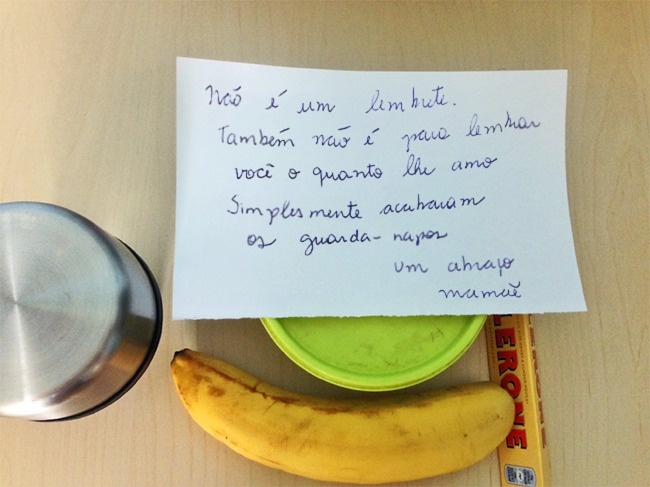 Não é um lembrete.
Também não é para lembrar
você o quanto lhe amo
Simplesmente acabaram
os guarda-napos
um abraço
mamãe
LERONE